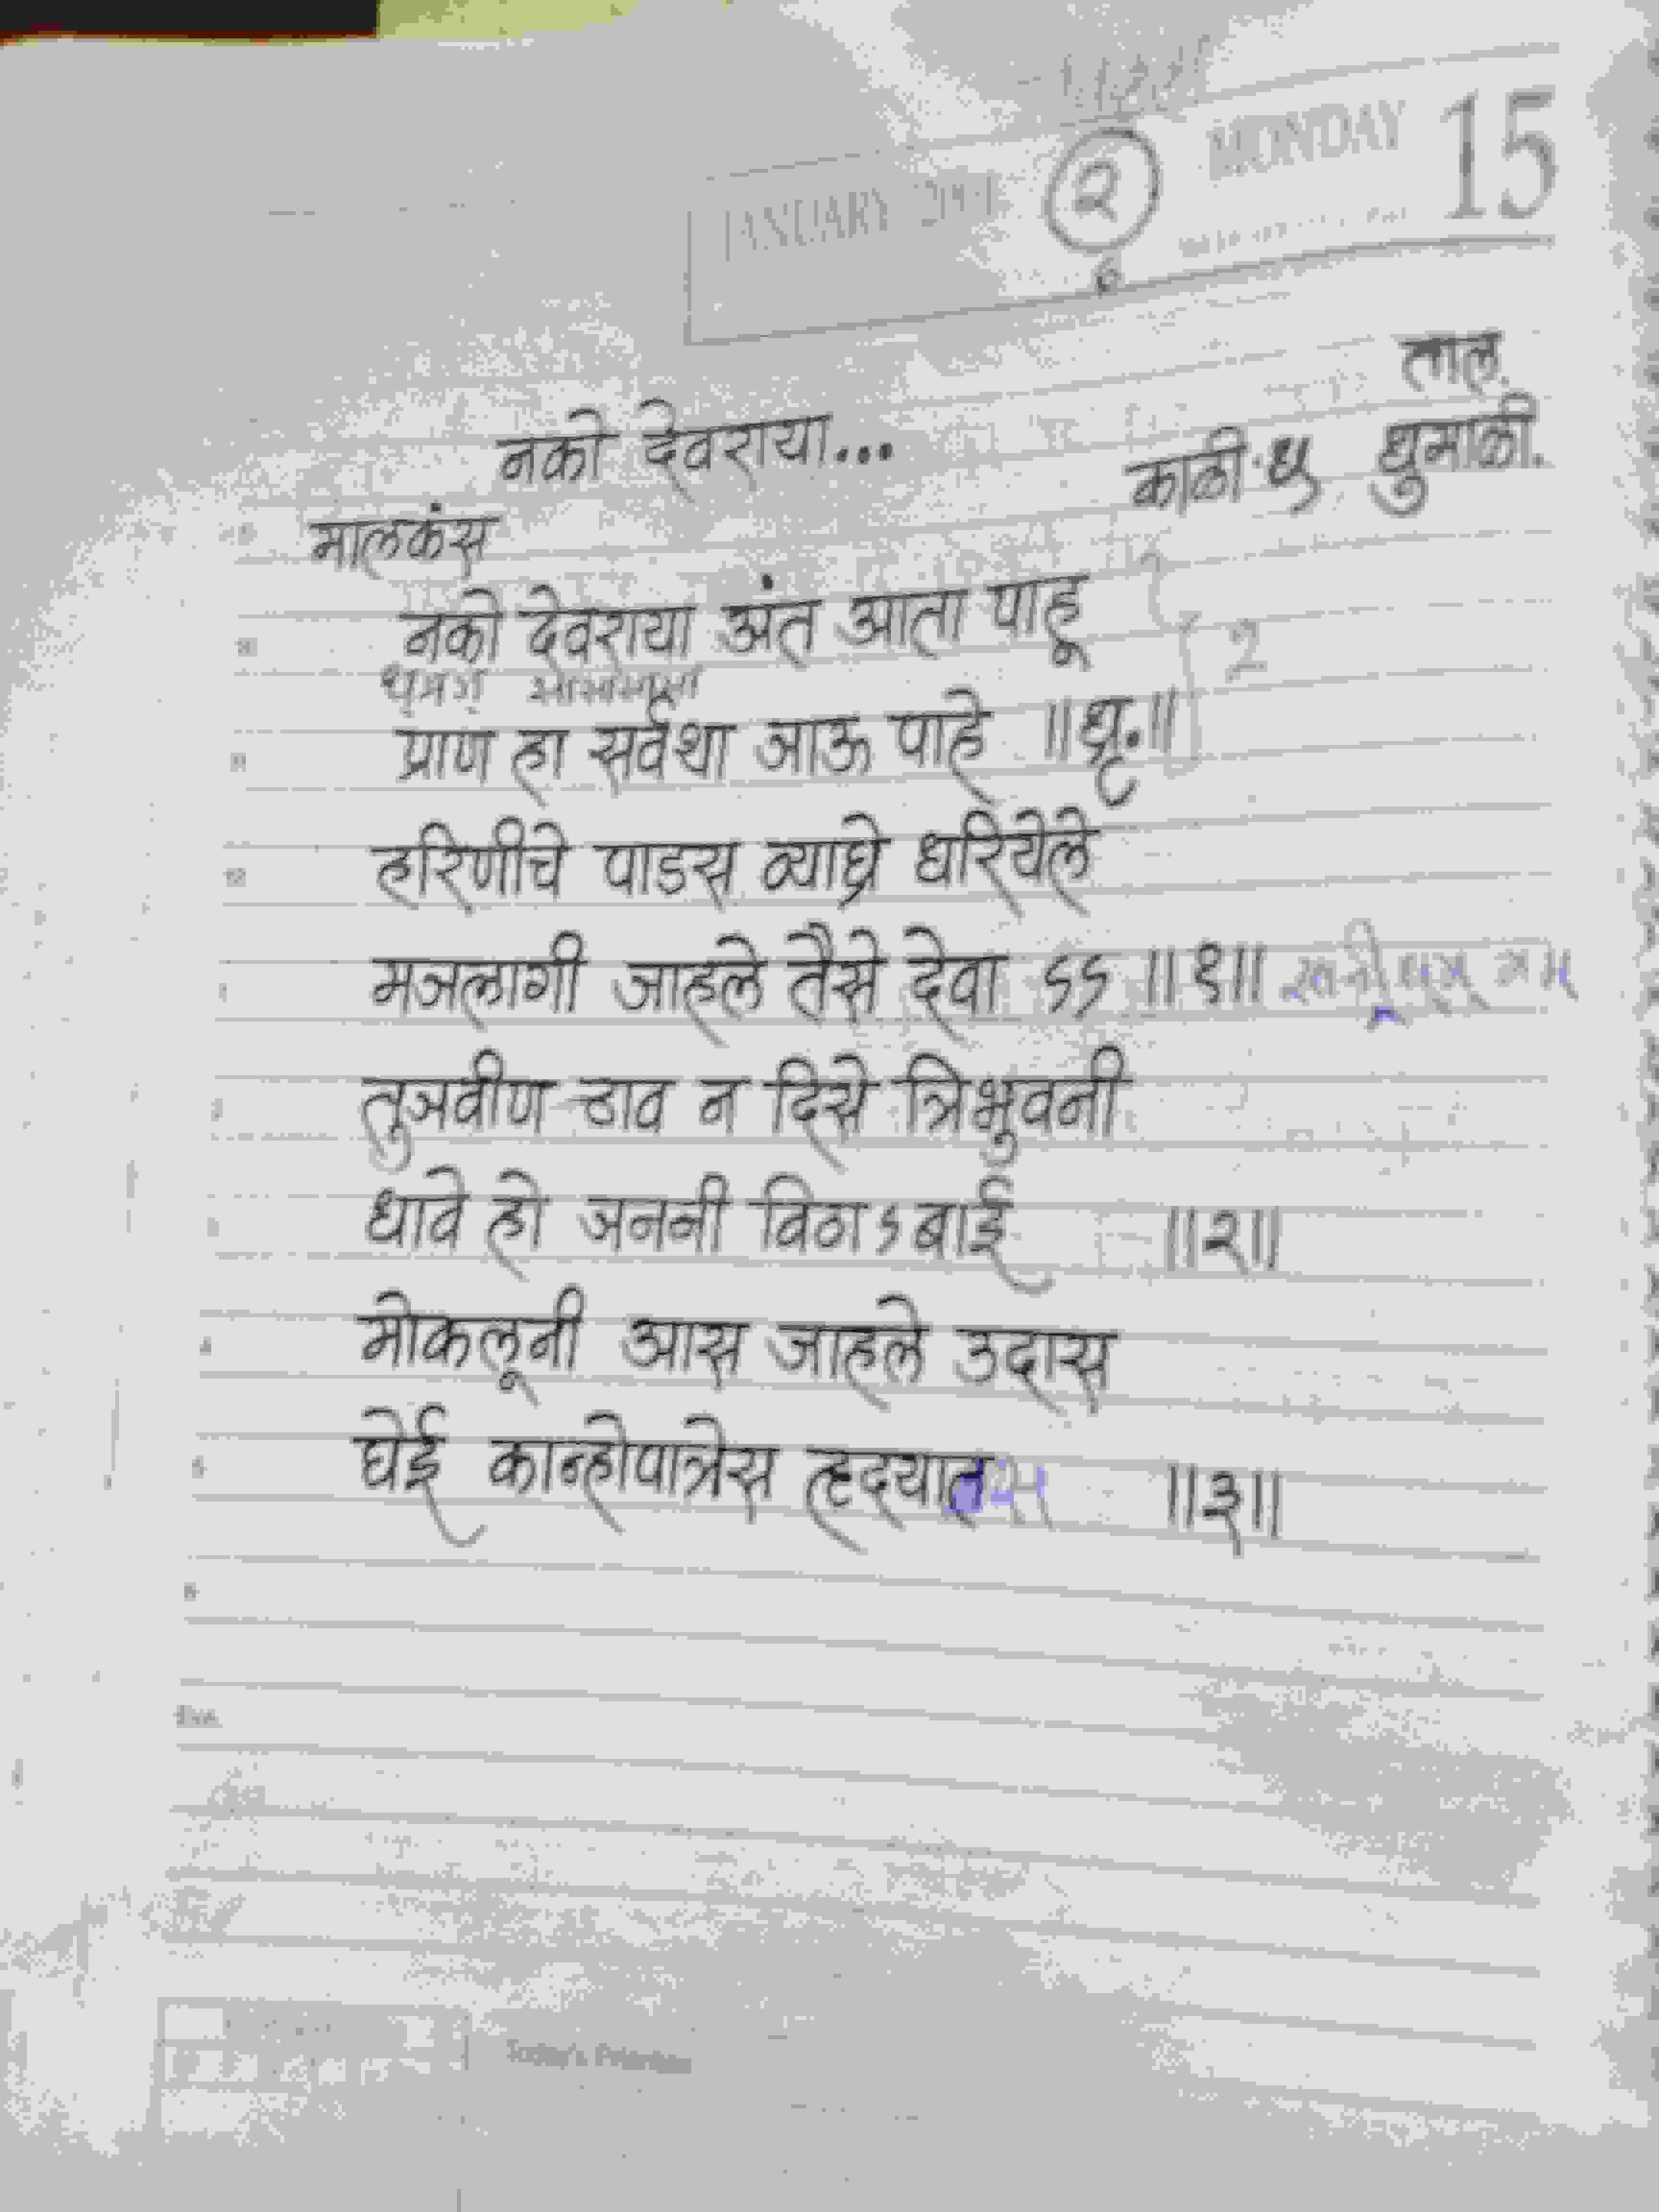 JANUARY 2001 २ MONDAY 15
ताल.
नको देवराया... काळी ध धुमाळी.
मालकंस
नको देवराया अंत आता पाहू
2
प्राण हा सर्वथा जाऊ पाहे ॥धृ.॥
हरिणीचे पाडस व्याघ्रे धरियेले
मजलागी जाहले तैसे देवा ऽऽ ॥१॥
तुजवीण ठाव न दिसे त्रिभुवनी
धावे हो जननी विठाऽबाई ॥२॥
मोकलूनी आस जाहले उदास
घेई कान्होपात्रेस हृदयात ॥३॥
Eve.
Today's Priorities